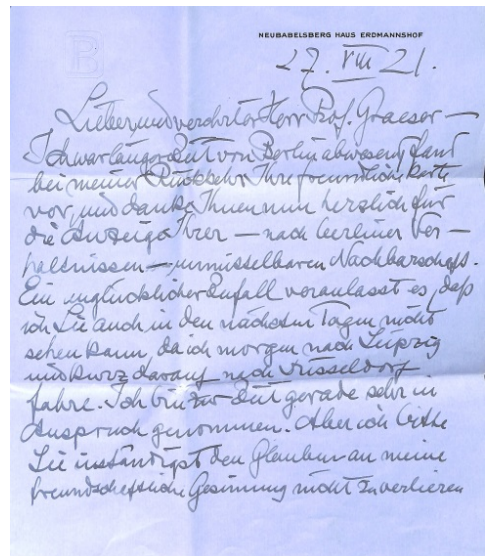 NEUBABELSBERG HAUS ERDMANNSHOF
27. VIII 21.
Lieber und verehrter Herr Prof. Graeser —
Ich war längere Zeit von Berlin abwesend, fand
bei meiner Rückkehr Ihre freundliche Karte
vor, und danke Ihnen nun herzlich für
die Anzeige Ihrer — nach Berliner Ver-
hältnissen — unmittelbaren Nachbarschaft.
Ein unglücklicher Zufall veranlasst es, daß
ich Sie auch in den nächsten Tagen nicht
sehen kann, da ich morgen nach Leipzig
und kurz darauf nach Düsseldorf
fahre. Ich bin zur Zeit gerade sehr in
Anspruch genommen. Aber ich bitte
Sie inständigst den Glauben an meine
freundschaftliche Gesinnung nicht zu verlieren